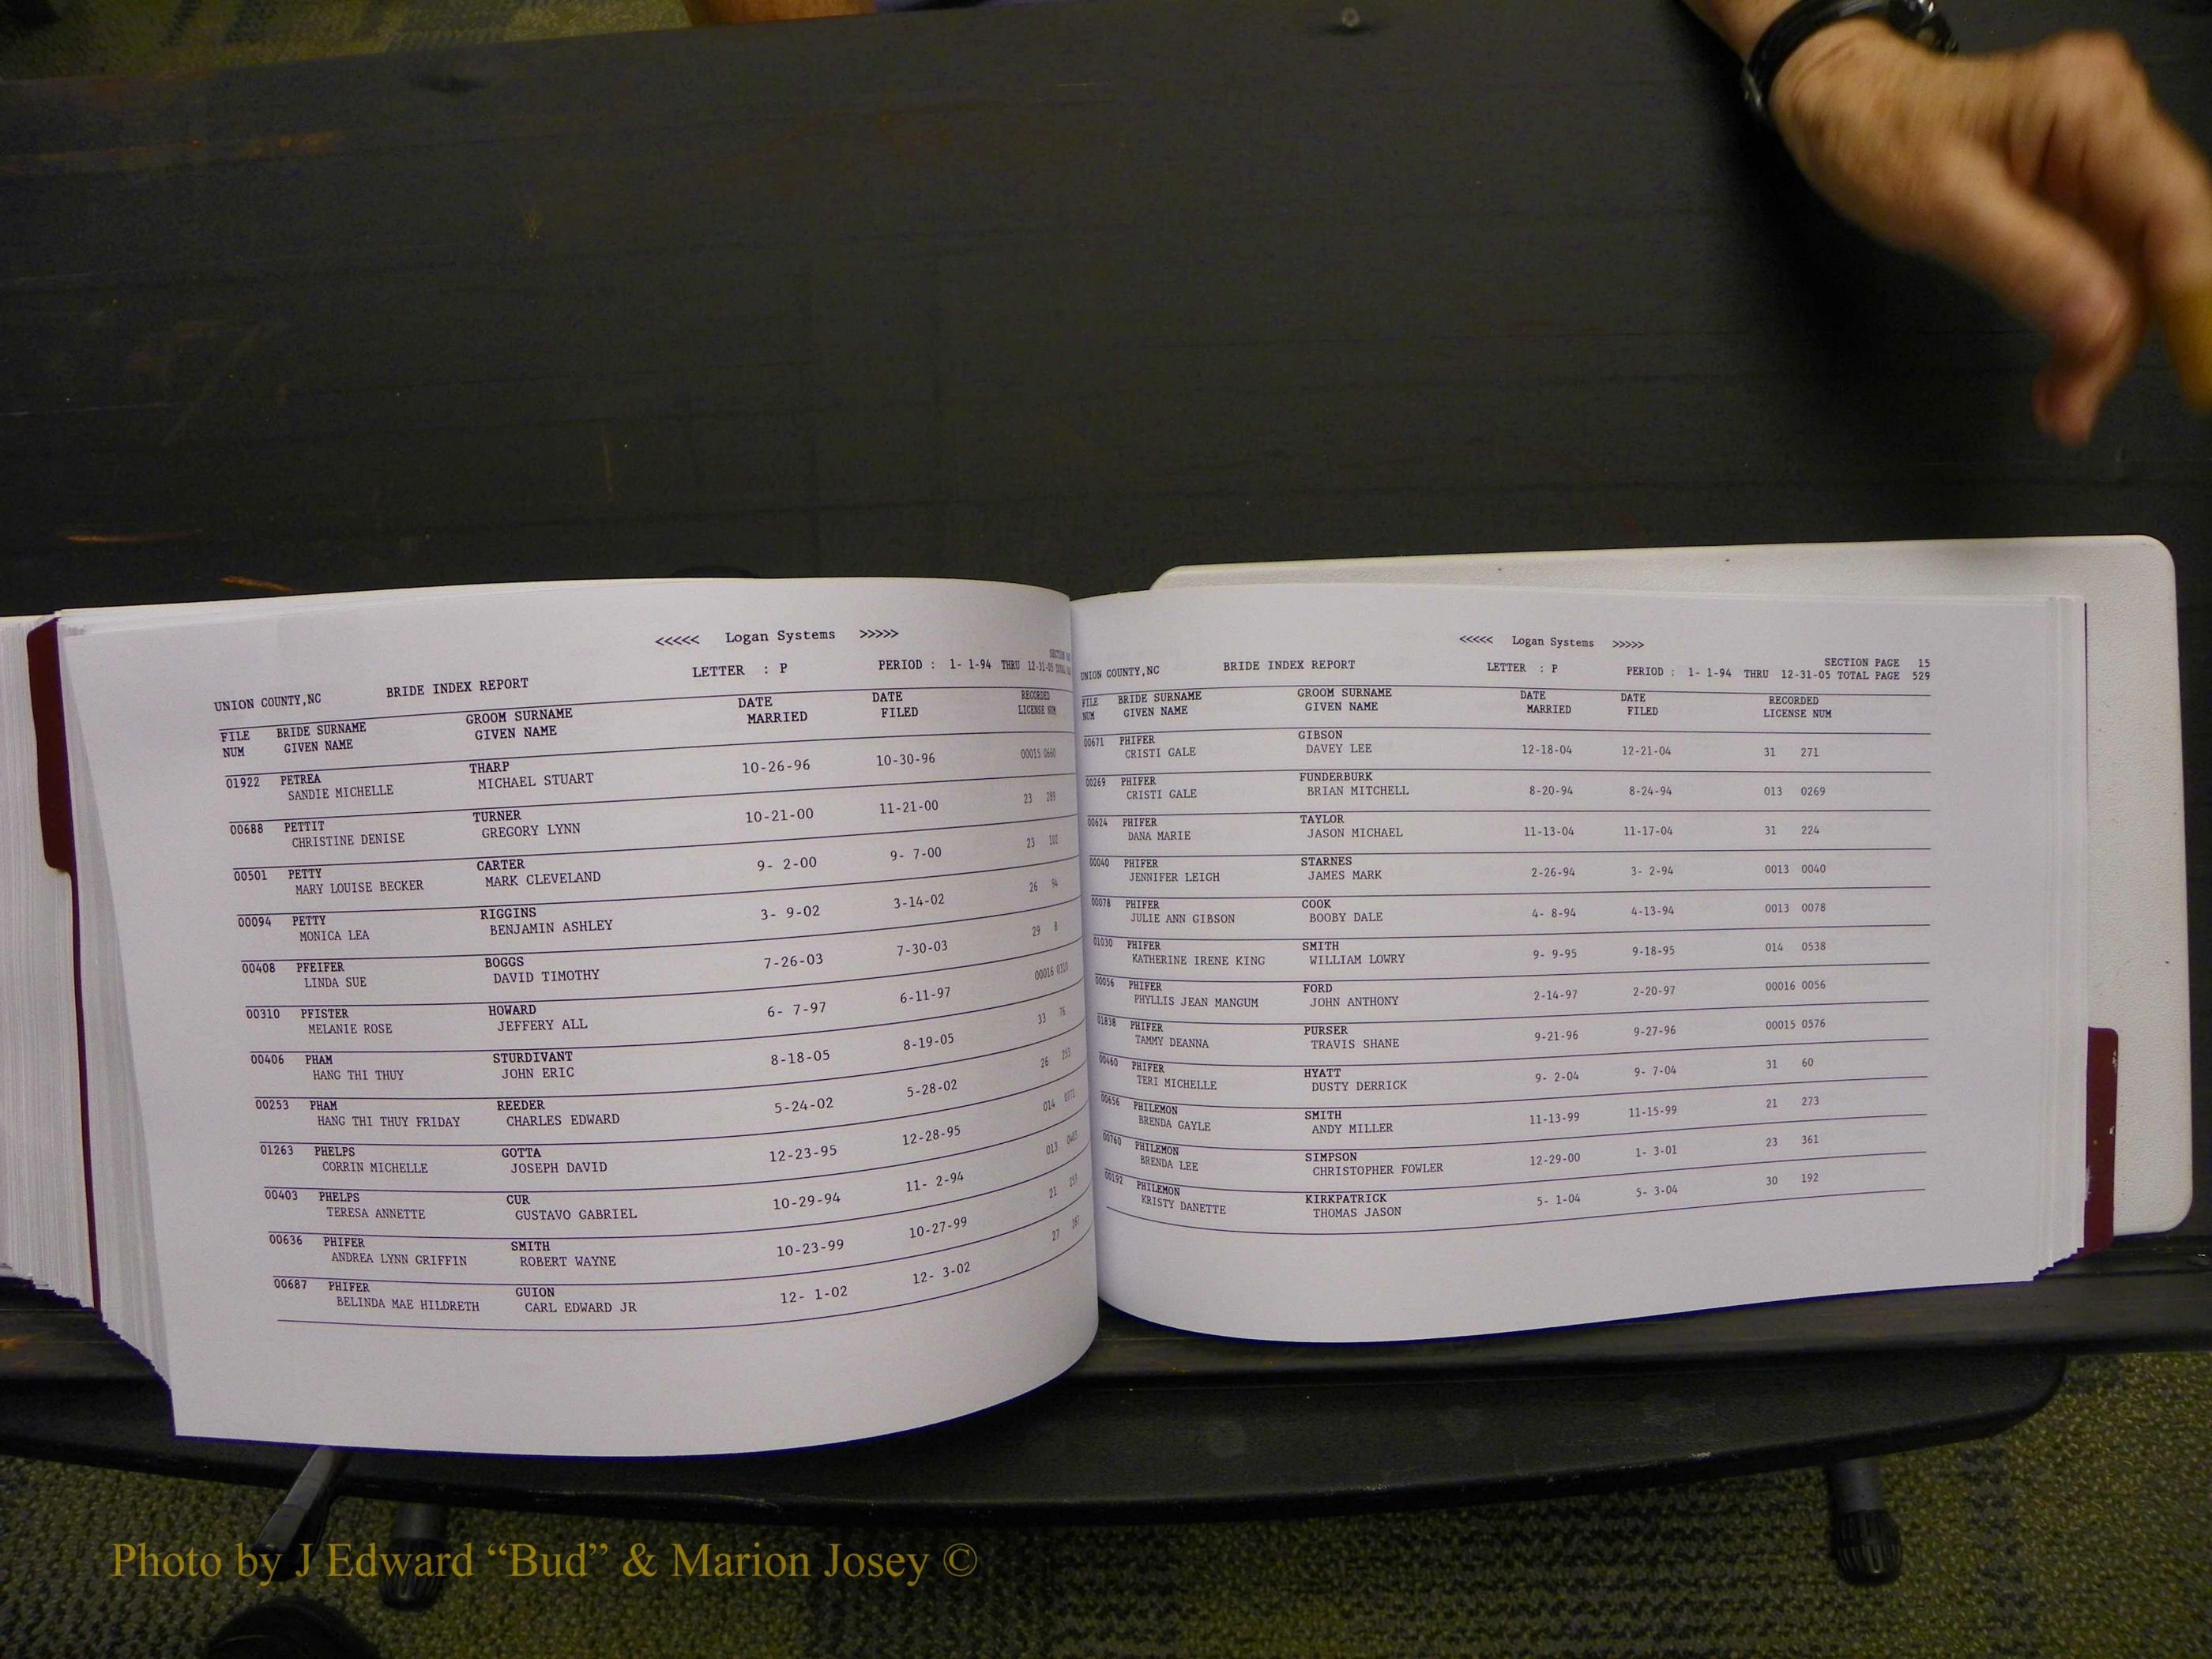 <<<<< Logan Systems >>>>>
UNION COUNTY,NC BRIDE INDEX REPORT LETTER : P PERIOD : 1- 1-94 THRU 12-31-05 TOTAL
FILE BRIDE SURNAME GROOM SURNAME DATE DATE RECORDED
NUM GIVEN NAME GIVEN NAME MARRIED FILED LICENSE NUM
01922 PETREA THARP 10-26-96 10-30-96 00015 0660
SANDIE MICHELLE MICHAEL STUART
00688 PETTIT TURNER 10-21-00 11-21-00 23 289
CHRISTINE DENISE GREGORY LYNN
00501 PETTY CARTER 9- 2-00 9- 7-00 23 102
MARY LOUISE BECKER MARK CLEVELAND
00094 PETTY RIGGINS 3- 9-02 3-14-02 26 94
MONICA LEA BENJAMIN ASHLEY
00408 PFEIFER BOGGS 7-26-03 7-30-03 29 8
LINDA SUE DAVID TIMOTHY
00310 PFISTER HOWARD 6- 7-97 6-11-97 00016 0310
MELANIE ROSE JEFFERY ALL
00406 PHAM STURDIVANT 8-18-05 8-19-05 33
HANG THI THUY JOHN ERIC
00253 PHAM REEDER 5-24-02 5-28-02 26 253
HANG THI THUY FRIDAY CHARLES EDWARD
01263 PHELPS GOTTA 12-23-95 12-28-95 014
CORRIN MICHELLE JOSEPH DAVID
00403 PHELPS CUR 10-29-94 11- 2-94 013
TERESA ANNETTE GUSTAVO GABRIEL
00636 PHIFER SMITH 10-23-99 10-27-99 21
ANDREA LYNN GRIFFIN ROBERT WAYNE
00687 PHIFER GUION 12- 1-02 12- 3-02 27
BELINDA MAE HILDRETH CARL EDWARD JR
<<<<< Logan Systems >>>>>
SECTION PAGE 15
UNION COUNTY,NC BRIDE INDEX REPORT LETTER : P PERIOD : 1- 1-94 THRU 12-31-05 TOTAL PAGE 529
FILE BRIDE SURNAME GROOM SURNAME DATE DATE RECORDED
NUM GIVEN NAME GIVEN NAME MARRIED FILED LICENSE NUM
00671 PHIFER GIBSON 12-18-04 12-21-04 31 271
CRISTI GALE DAVEY LEE
00269 PHIFER FUNDERBURK 8-20-94 8-24-94 013 0269
CRISTI GALE BRIAN MITCHELL
00624 PHIFER TAYLOR 11-13-04 11-17-04 31 224
DANA MARIE JASON MICHAEL
00040 PHIFER STARNES 2-26-94 3- 2-94 0013 0040
JENNIFER LEIGH JAMES MARK
00078 PHIFER COOK 4- 8-94 4-13-94 0013 0078
JULIE ANN GIBSON BOOBY DALE
01030 PHIFER SMITH 9- 9-95 9-18-95 014 0538
KATHERINE IRENE KING WILLIAM LOWRY
00056 PHIFER FORD 2-14-97 2-20-97 00016 0056
PHYLLIS JEAN MANGUM JOHN ANTHONY
01838 PHIFER PURSER 9-21-96 9-27-96 00015 0576
TAMMY DEANNA TRAVIS SHANE
00460 PHIFER HYATT 9- 2-04 9- 7-04 31 60
TERI MICHELLE DUSTY DERRICK
00656 PHILEMON SMITH 11-13-99 11-15-99 21 273
BRENDA GAYLE ANDY MILLER
00760 PHILEMON SIMPSON 12-29-00 1- 3-01 23 361
BRENDA LEE CHRISTOPHER FOWLER
00192 PHILEMON KIRKPATRICK 5- 1-04 5- 3-04 30 192
KRISTY DANETTE THOMAS JASON
Photo by J Edward “Bud” & Marion Josey ©